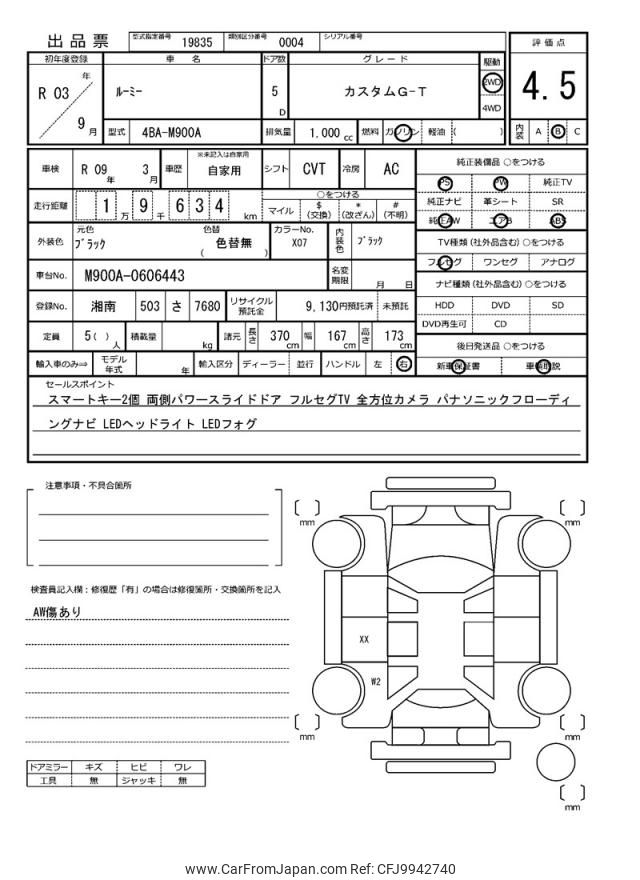 出品票
型式指定番号 19835 類別区分番号 0004 シリアル番号
初年度登録 車名 ドア数 グレード 駆動 評価点
R 03 年 9 月 ルーミー 5 D カスタムG-T 2WD 4WD 4.5
型式 4BA-M900A 排気量 1.000 cc 燃料 ガソリン 軽油 ( ) 内装 A B C
車検 R 09 年 3 月 車歴 ※未記入は自家用 自家用 シフト CVT 冷房 AC
純正装備品 ○をつける
PS PW 純正TV
純正ナビ 革シート SR
純正AW エアB ABS
走行距離 1 万 9 千 6 3 4 km ○をつける
マイル $ (交換) * (改ざん) # (不明)
TV種類 (社外品含む) ○をつける
フルセグ ワンセグ アナログ
外装色 元色 ブラック 色替 ( 色替無 ) カラーNo. X07 内装色 ブラック
車台No. M900A-0606443 名変期限 月 日
ナビ種類 (社外品含む) ○をつける
HDD DVD SD
DVD再生可 CD
登録No. 湘南 503 さ 7680 リサイクル預託金 9,130円預託済 未預託
定員 5( ) 人 積載量 kg 諸元 長さ 370 cm 幅 167 cm 高さ 173 cm
後日発送品 ○をつける
新車保証書 車輌取説
輸入車のみ⇒ モデル年式 年 輸入区分 ディーラー 並行 ハンドル 左 右
セールスポイント
スマートキー2個 両側パワースライドドア フルセグTV 全方位カメラ パナソニックフローディ
ングナビ LEDヘッドライト LEDフォグ
注意事項・不具合箇所
検査員記入欄：修復歴「有」の場合は修復箇所・交換箇所を記入
AW傷あり
mm
mm
XX
W2
mm
mm
mm
ドアミラー キズ ヒビ ワレ
工具 無 ジャッキ 無
www.CarFromJapan.com Ref: CFJ9942740